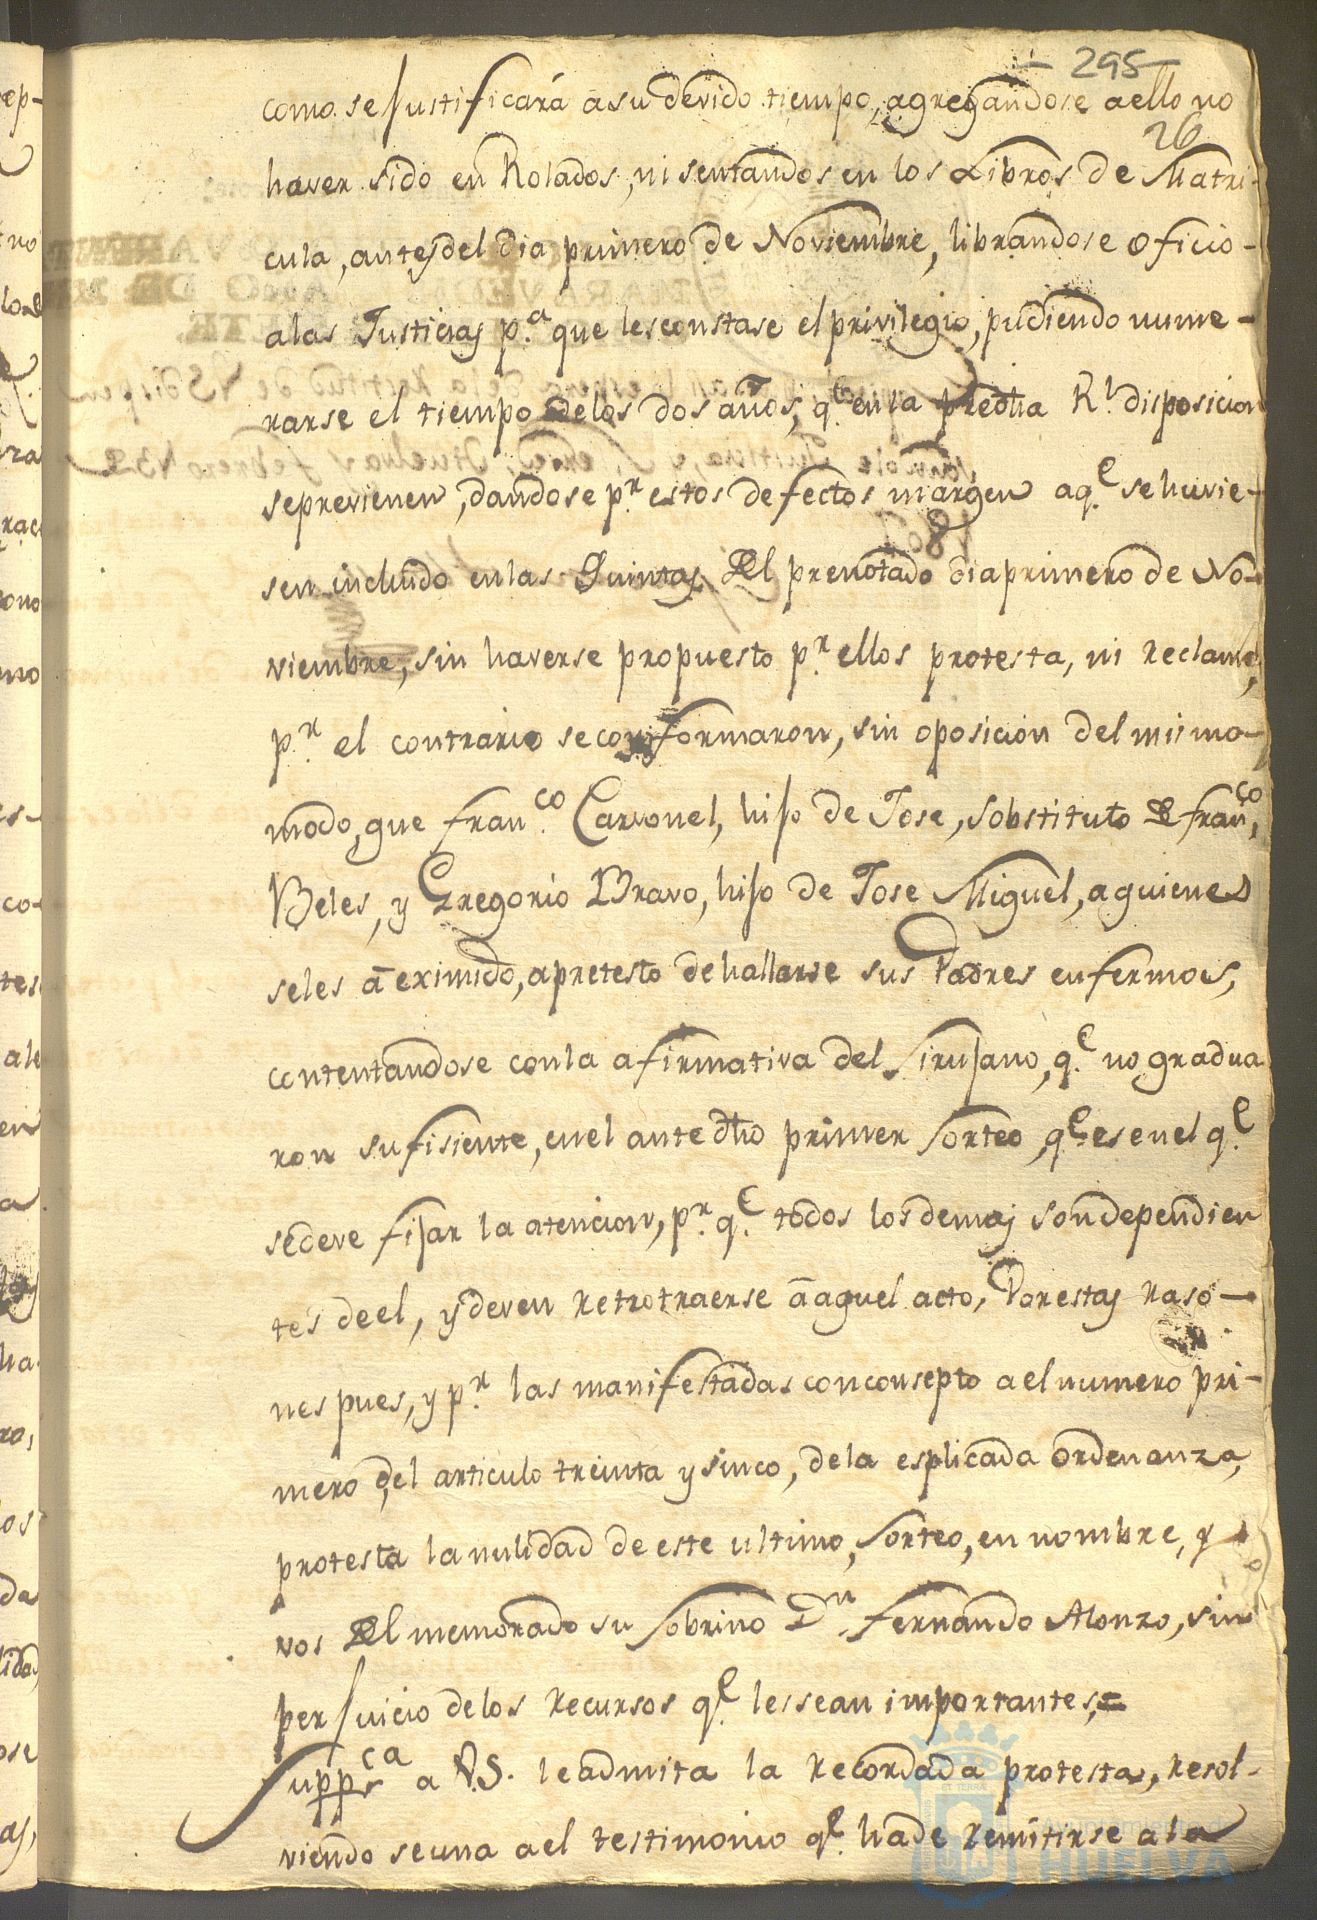 -295-
como se Justificará â su devido tiempo, agregandose a ello no
26
haver sido en Rolados, ni sentandos en los Libros de Matri-
cula, antes del dia primero de Noviembre, librandose oficio-
a las Justicias p.ª que les constase el privilegio, pudiendo nume-
rarse el tiempo de los dos años, q.e en la predha R.l disposicion
se previenen, dandose p.r estos defectos margen a q.e se huvie-
sen incluido en las Quintas Del prenotado dia primero de No-
viembre, sin haverse propuesto p.r ellos protesta, ni reclamo,
p.r el contrario se conformaron, sin oposicion del mismo-
modo, que fran.co Carvonel, hijo de Jose, sobstituto De fran.co
Veles, y Gregorio Bravo, hijo de Jose Miguel, a quienes
se les â eximido, a pretesto de hallarse sus Padres enfermos,
contentandose con la afirmativa del Sirujano, q.e no gradua
ron sufisiente, en el ante dho primer Sorteo, q.e es en el q.e
se deve fijar la atencion, p.r q.e todos los demas son dependien
tes de el, y deven retrotraerse â aquel acto, Por estas raso-
nes pues, y p.r las manifestadas con consepto a el numero pri-
mero, del articulo treinta y sinco, de la esplicada ordenanza,
protesta la nulidad de este ultimo, Sorteo, en nombre, y
vos Del memorado su Sobrino D.n Fernando Alonzo, sin
perjuicio de los recursos q.e les sean importantes,=
Supp.ca a V.S. le admita la recordada protesta, resol-
viendo se una a el testimonio q.e ha de remitirse a la
Ayuntamiento de
HUELVA